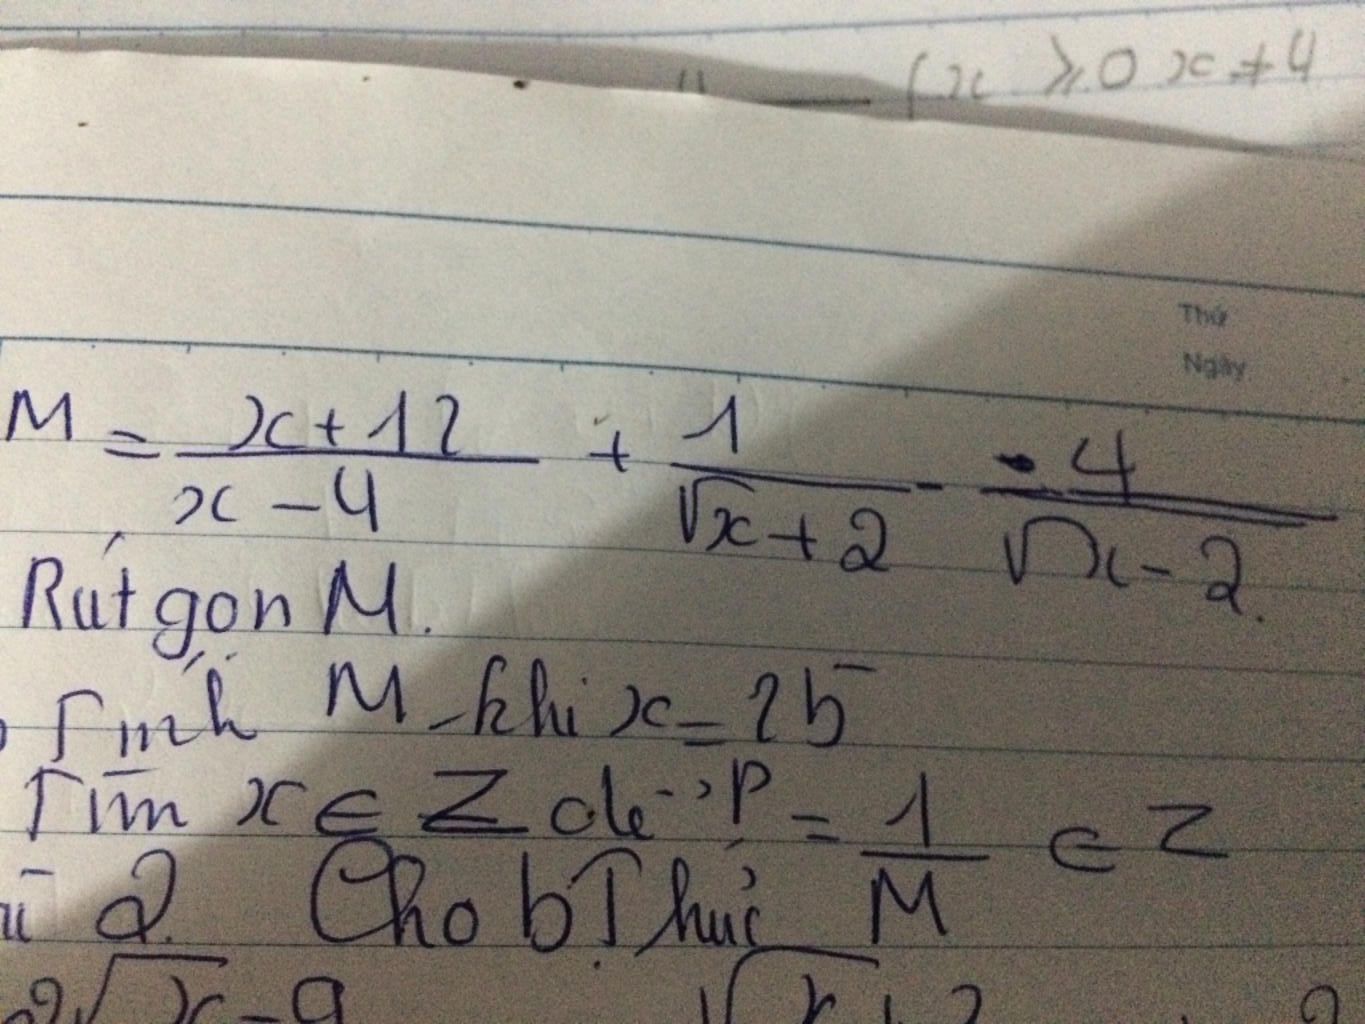 (x ⩾ 0 x ≠ 4
Thứ
Ngày
M = \frac{x+12}{x-4} + \frac{1}{\sqrt{x}+2} - \frac{4}{\sqrt{x}-2}.
Rút gọn M.
Tính M khi x = 25
Tìm x ∈ Z để P = \frac{1}{M} ∈ Z
2. Cho bThức
2\sqrt{x}-9